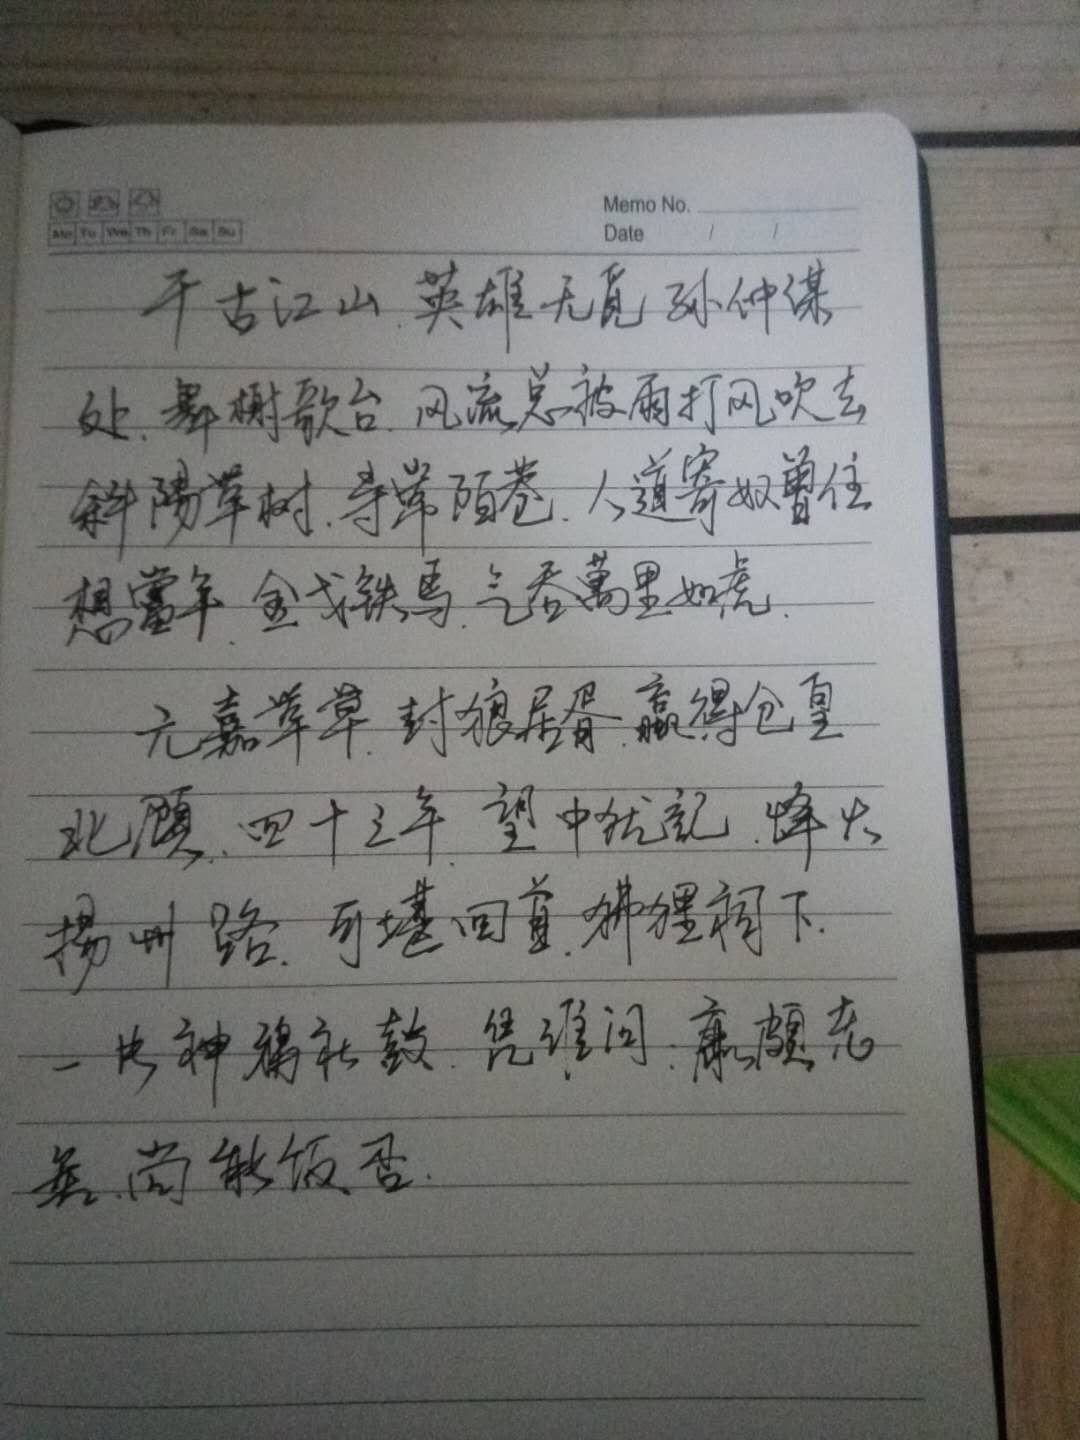 Memo No.
Mo Tu We Th Fr Sa Su
Date / /
千古江山.英雄无觅孙仲谋
处.舞榭歌台.风流总被雨打风吹去
斜陽草树.寻常陌巷.人道寄奴曾住
想當年.金戈铁馬.气吞萬里如虎.
元嘉草草.封狼居胥.赢得仓皇
北顾.四十三年.望中犹記.烽火
揚州路.可堪回首.狒狸祠下.
一片神鴉社鼓.凭谁问.廉颇老
矣.尚能饭否.